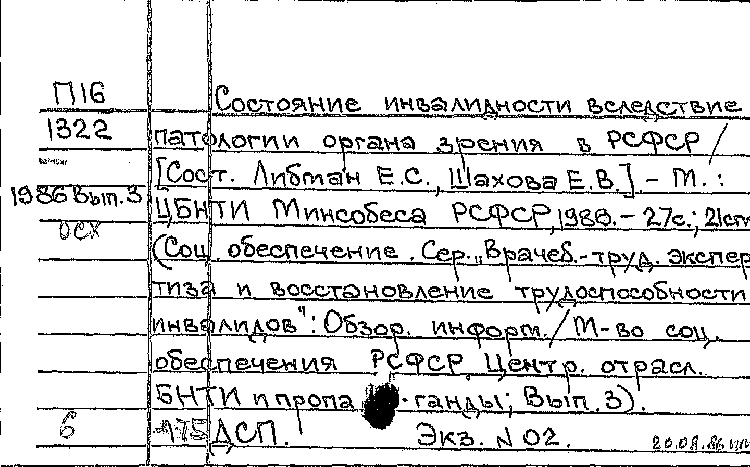 П16 Состояние инвалидности вследствие
1322 патологии органа зрения в РСФСР /
[Сост. Либман Е.С., Шахова Е.В.] - М. :
1986 Вып. 3 ЦБНТИ Минсобеса РСФСР, 1986. - 27с.; 21см
ОСХ (Соц. обеспечение. Сер. „Врачеб.-труд. экспер
тиза и восстановление трудоспособности
инвалидов": Обзор. информ. / М-во соц.
обеспечения РСФСР, Центр. отрасл.
БНТИ и пропа ганды; Вып. 3).
6 175 ДСП. Экз. N 02. 20.08.86